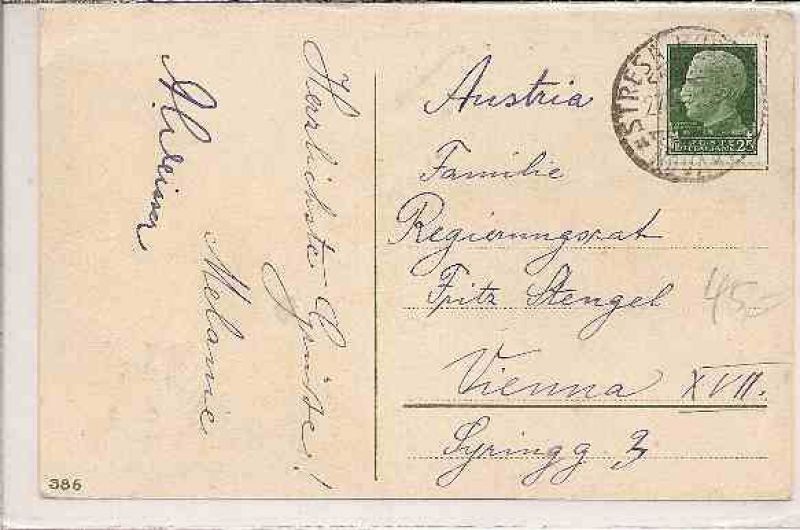 Herzlichste
Grüsse!
Melanie
Austria
Familie
Regierungsrat
Fritz Stengel
Vienna XVII.
Syringg 3
45.-
STRESA
25
386